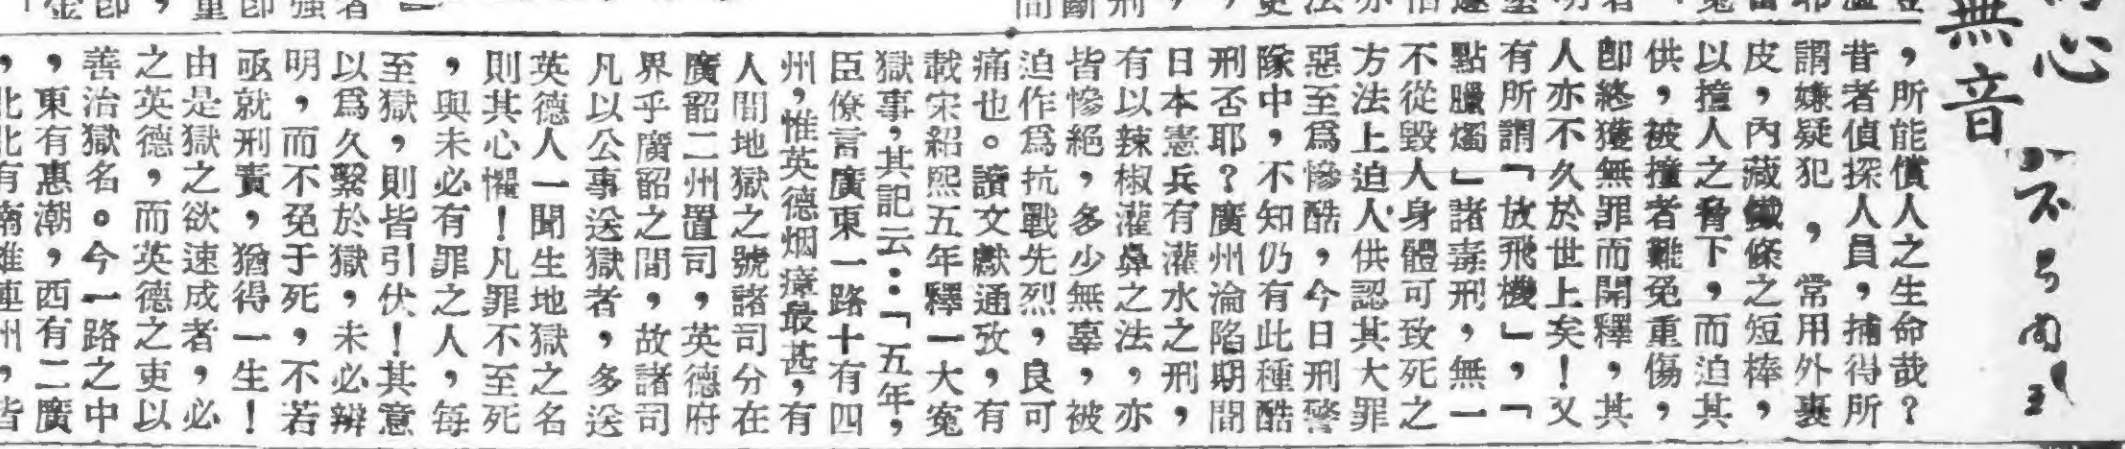 心
無音
，所能償人之生命哉？
昔者偵探人員，捕得所
謂嫌疑犯，常用外裹
皮，內藏鐵條之短棒，
以撞人之脅下，而迫其
供，被撞者難免重傷，
卽終獲無罪而開釋，其
人亦不久於世上矣！又
有所謂「放飛機」，「
點臘燭」諸毒刑，無一
不從毀人身體可致死之
方法上迫人供認其大罪
惡至爲慘酷，今日刑警
隊中，不知仍有此種酷
刑否耶？廣州淪陷期間
日本憲兵有灌水之刑，
有以辣椒灌鼻之法，亦
皆慘絕，多少無辜，被
迫作爲抗戰先烈，良可
痛也。讀文獻通攷，有
載宋紹熙五年釋一大寃
獄事，其記云：「五年，
臣僚言廣東一路十有四
州，惟英德烟瘴最甚，有
人間地獄之號諸司分在
廣韶二州置司，英德府
界乎廣韶之間，故諸司
凡以公事送獄者，多送
英德人一聞生地獄之名
則其心懼！凡罪不至死
，與未必有罪之人，每
至獄，則皆引伏！其意
以爲久繫於獄，未必辨
明，而不免于死，不若
亟就刑責，猶得一生！
由是獄之欲速成者，必
之英德，而英德之吏以
善治獄名。今一路之中
，東有惠潮，西有二廣
，北有南雄連州，皆